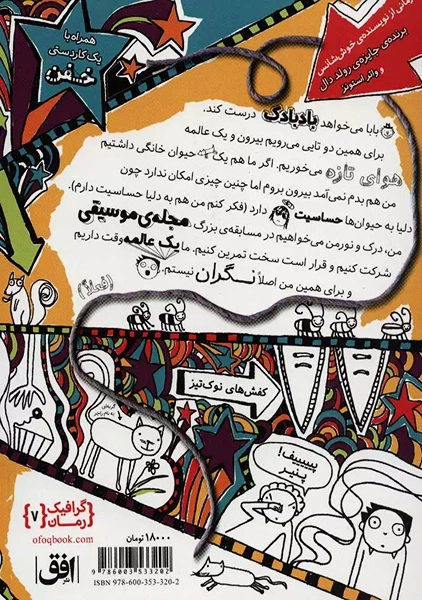 رمانی از نویسنده‌ی خوش‌شانس
برنده‌ی جایزه‌ی رولد دال
و واتر استونز
همراه با
یک کاردستی
خفن
بابا می‌خواهد بادبادک درست کند.
برای همین دو تایی می‌رویم بیرون و یک عالمه
هوای تازه می‌خوریم. اگر ما هم یک حیوان خانگی داشتیم
من هم بدم نمی‌آمد بیرون بروم اما چنین چیزی امکان ندارد چون
دلیا به حیوان‌ها حساسیت دارد (فکر کنم من هم به دلیا حساسیت دارم).
من، درک و نورمن می‌خواهیم در مسابقه‌ی بزرگ مجله‌ی موسیقی
شرکت کنیم و قرار است سخت تمرین کنیم. ما یک عالمه وقت داریم
و برای همین من اصلاً نگران نیستم.
(فعلاً)
کفش‌های نوک‌تیز
پیییییف!
پنیر
گرافیک
رمان
۷
ofoqbook.com
نشر افق
۱۸۰۰۰ تومان
9 786003 533202
ISBN 978-600-353-320-2